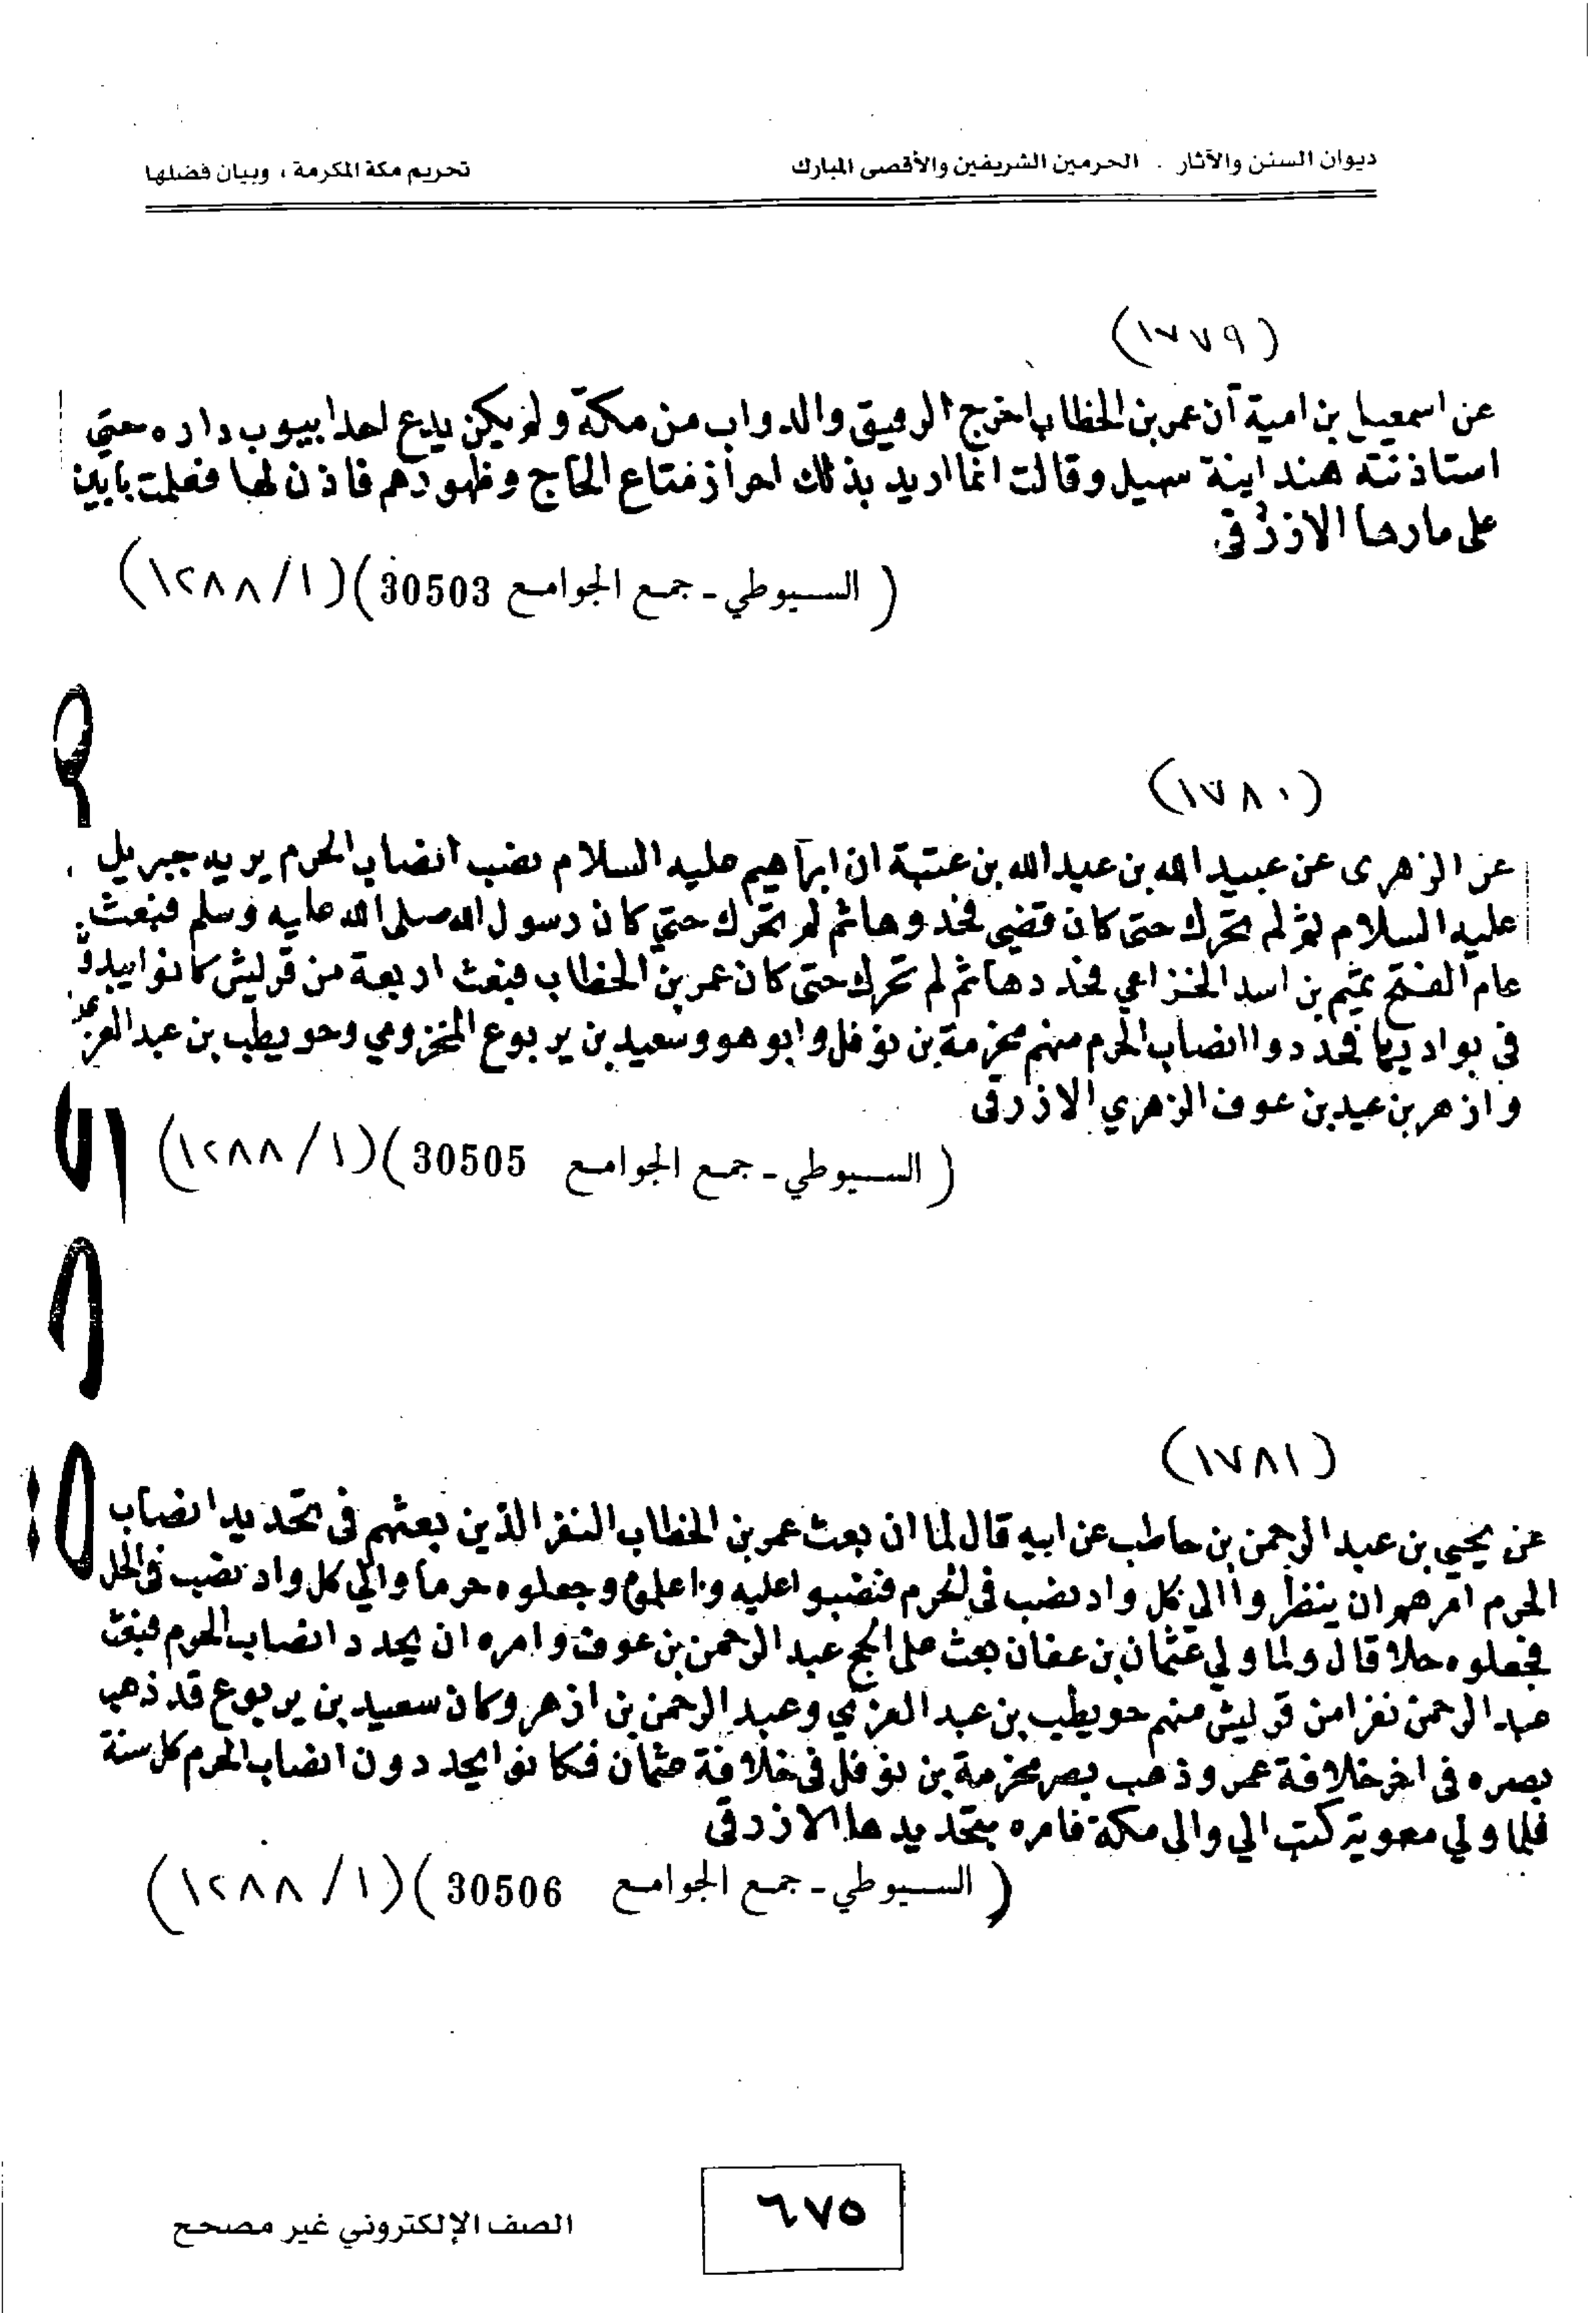 ديوان السنن والآثار . الحرمين الشريفين والأقصى المبارك
تحريم مكة المكرمة ، وبيان فضلها
(١٧٧٩)
عن اسمعيل بن امية أن عمر بن الخطاب اخرج الرقيق والدواب من مكة ولم يكن يدع احدا يبوب داره حتي
استاذنته هند ابنة سهيل وقالت انما اريد بذلك احراز متاع الحاج وظهورهم فاذن لها فعلمت بابين
على دارها الازرقى
( السيوطي - جمع الجوامع 30503 ) (١٢٨٨/١)
(١٧٨٠)
عن الزهرى عن عبيد الله بن عبد الله بن عتبة ان ابرآهيم عليه السلام نصب انصاب الحرم يريه جبريل
عليه السلام ثم لم تحرك حتى كان قصي فجددها ثم لم تحرك حتي كان رسول الله صلى الله عليه وسلم فبعث
عام الفتح تميم بن اسد الخزاعي فجددها ثم لم تحرك حتى كان عمر بن الخطاب فبعث اربعة من قريش كانوا يبدون
فى بواديها فجددوا انصاب الحرم منهم مخرمة بن نوفل وابو هو وسعيد بن يربوع المخزومي وحويطب بن عبد العزى
وازهر بن عبد بن عوف الزهري الازرقى
( السيوطي - جمع الجوامع 30505 ) (١٢٨٨/١)
(١٧٨١)
عن يحيي بن عبد الرحمن بن حاطب عن ابيه قال لما ان بعث عمر بن الخطاب النفر الذين بعثهم فى تحديد انصاب
الحرم امرهم ان ينظروا الي كل واد نصب فى الحرم فنصبوا عليه واعلموه وجعلوه حرما والي كل واد نصب فى الحل
فجعلوه حلا قال ولما ولي عثمان بن عفان بعث على الحج عبد الرحمن بن عوف وامره ان يجدد انصاب الحرم فبعث
عبد الرحمن نفرا من قريش منهم حويطب بن عبد العزي وعبد الرحمن بن ازهر وكان سعيد بن يربوع قد ذهب
بصره فى اخر خلافة عمر وذهب بصر مخرمة بن نوفل فى خلافة عثمان فكانوا يجددون انصاب الحرم كل سنة
فلما ولي معوية كتب الي والى مكة فامره بتحديدها الازرقى
( السيوطي - جمع الجوامع 30506 ) (١٢٨٨/١)
٦٧٥
الصف الإلكتروني غير مصحح